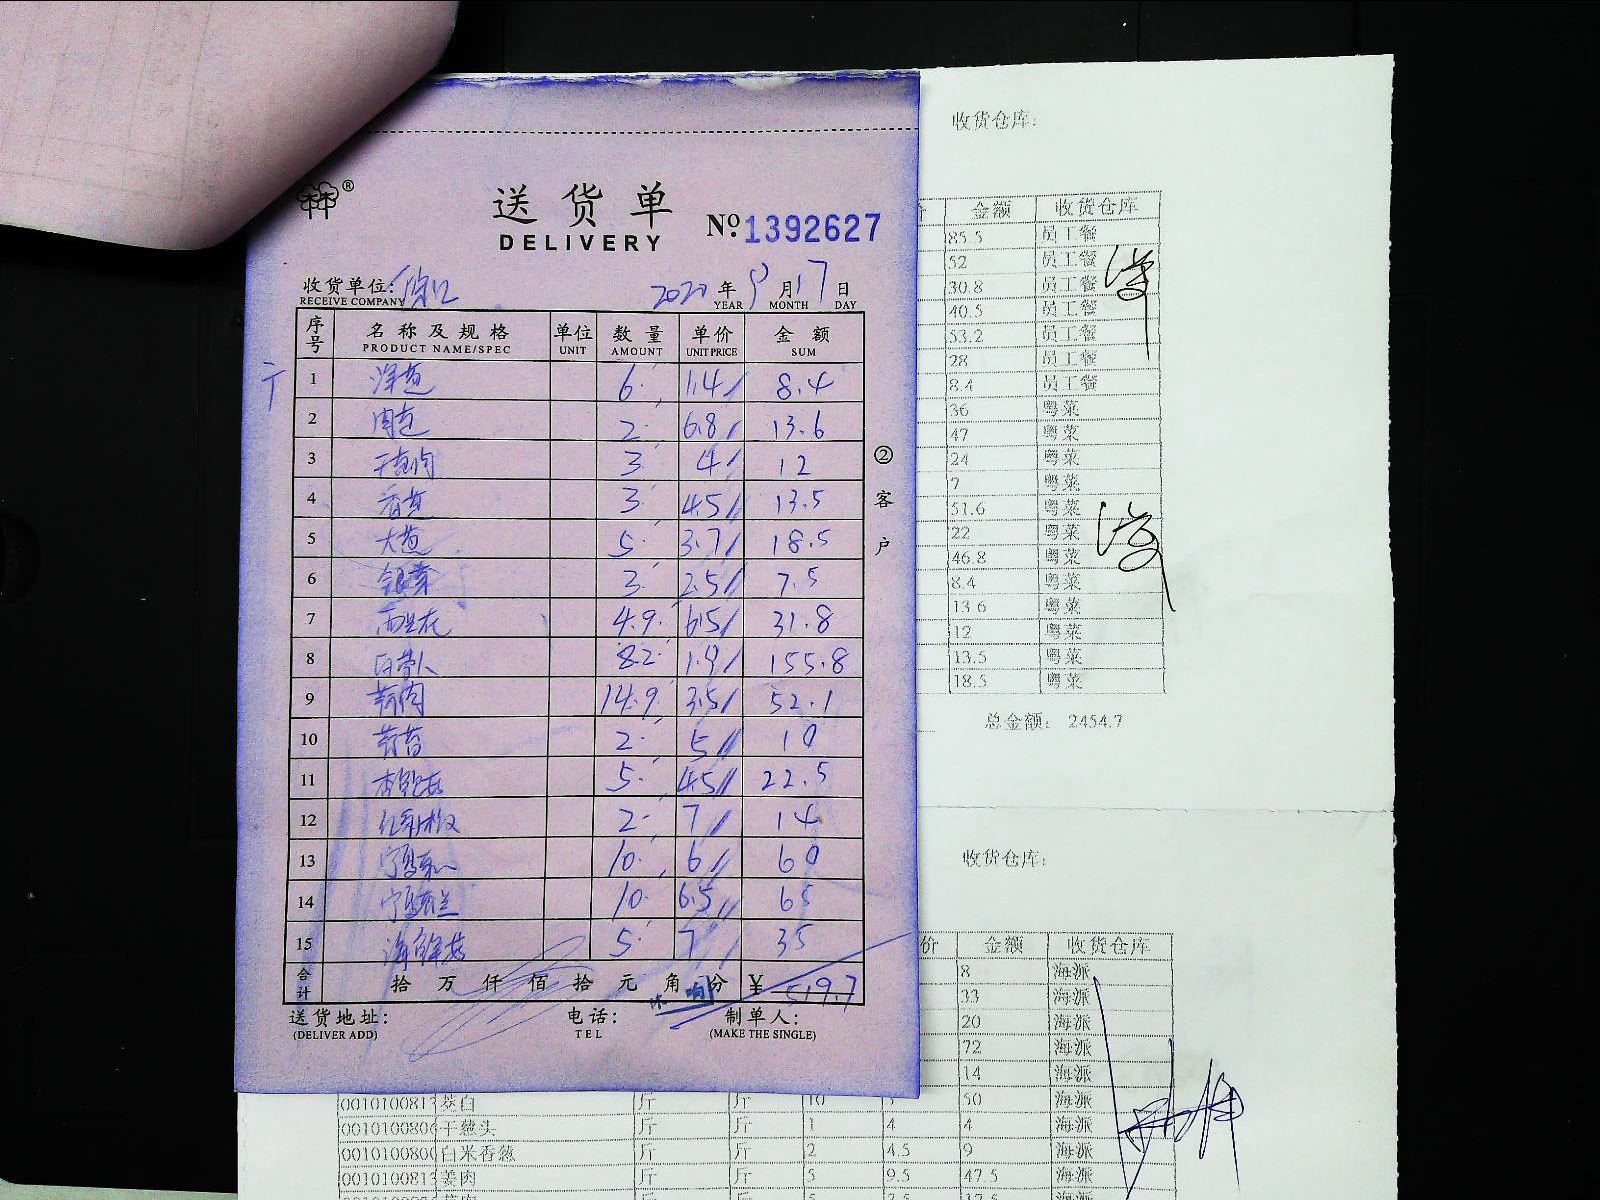 送货单
DELIVERY
No 1392627
收货单位: 徐汇
RECEIVE COMPANY
2020 年 9 月 17 日
YEAR MONTH DAY
序号 名称及规格 单位 数量 单价 金额
PRODUCT NAME/SPEC UNIT AMOUNT UNIT PRICE SUM
1 洋葱 6 1.4 8.4
2 6.8 13.6
3 3 4 12
4 香葱 3 4.5 13.5
5 大葱 5 3.7 18.5
6 银芽 3 2.5 7.5
7 西兰花 4.9 6.5 31.8
8 82 1.9 155.8
9 14.9 3.5 52.1
10 2 5 10
11 5 4.5 22.5
12 2 7 14
13 10 6 60
14 10 6.5 65
15 5 7 35
合计 拾 万 仟 佰 拾 元 角 分 ¥ 519.7
送货地址: 电话: 制单人:
(DELIVER ADD) TEL (MAKE THE SINGLE)
② 客户
收货仓库:
价 金额 收货仓库
85.5 员工餐
52 员工餐
30.8 员工餐
40.5 员工餐
53.2 员工餐
28 员工餐
8.4 员工餐
36 粤菜
47 粤菜
24 粤菜
7 粤菜
51.6 粤菜
22 粤菜
46.8 粤菜
8.4 粤菜
13.6 粤菜
12 粤菜
13.5 粤菜
18.5 粤菜
总金额: 2454.7
收货仓库:
价 金额 收货仓库
8 海派
33 海派
20 海派
72 海派
14 海派
0010100813 茭白 斤 斤 10 5 50 海派
0010100806 干葱头 斤 斤 1 4 4 海派
0010100800 白米香葱 斤 斤 2 4.5 9 海派
0010100813 姜肉 斤 斤 5 9.5 47.5 海派